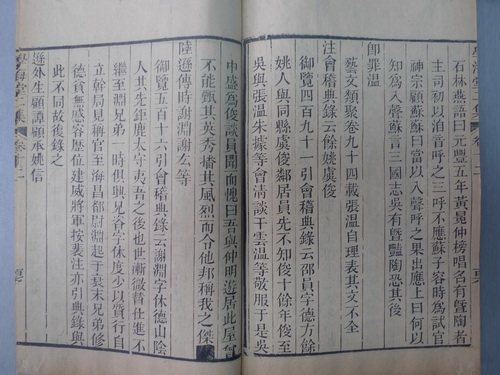 學海堂二集 卷十二
石林燕語曰元豐五年黃冕仲榜唱名有暨陶者
主司初以泊音呼之三呼不應蘇子容時為試官
神宗顧蘇蘇曰當以入聲呼之果出應上曰何以
知為入聲蘇言三國志吳有暨豔陶恐其後
卽罪溫
藝文類聚卷九十四載張溫自理表其文不全
注會稽典錄云餘姚虞俊
御覽四百九九一引會稽典錄云邵員字德方餘
姚人與同縣虞俊鄰居員先不知俊十餘年俊至
吳與張溫朱據等會清談干雲溫等敬服于是吳
中盛為俊談員聞而愧曰吾與仲明遊居比屋曾
不能甄其英秀播其風烈而令他邦稱我之傑
陸遜傳時謝淵謝厷等
御覽五百十六引會稽典錄云謝淵字休德山陰
人其先鉅鹿太守夷吾之後也世漸微替仕進不
繼至淵兄弟一時俱興兄咨字休度少以質行自
立幹局見稱官至海昌都尉淵起于衰末兄弟修
德貧無慼容歷位建威將軍按裴注亦引典錄與
此不同故復錄之
遜外生顧譚顧承姚信
學海堂二集 卷十二